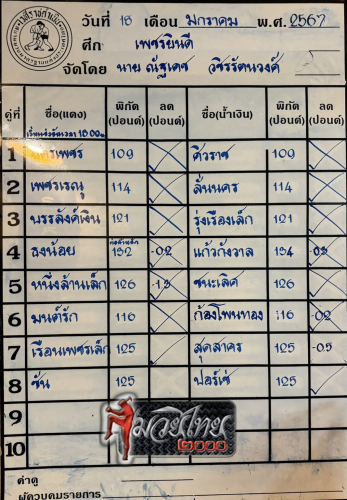 วันที่ 18 เดือน มกราคม พ.ศ. 2567
ศึก เพชรยินดี
จัดโดย นาย ณัฐเดช วชิรรัตนวงศ์
คู่ที่ ชื่อ(แดง) พิกัด (ปอนด์) ลด (ปอนด์) ชื่อ(น้ำเงิน) พิกัด (ปอนด์) ลด (ปอนด์)
1 109 ศิวราช 109
2 เพชรเรณู 114 ลั่นนคร 114
3 บรรลังค์เงิน 121 รุ่งเรืองเล็ก 121
4 ธงน้อย 132 -0.2 แก้วกังวาล 134 -0.3
5 หนึ่งล้านเล็ก 126 -1.3 ชนะเลิศ 126
6 มนต์รัก 116 ก้องโพนทอง 116 -0.2
7 เรือนเพชรเล็ก 125 สุดสาคร 125 -0.5
8 ซัน 125 ปอร์เช่ 125
9
10
มวยไทย
๒๐๐๐
คำดู
ผู้ควบคุมรายการ